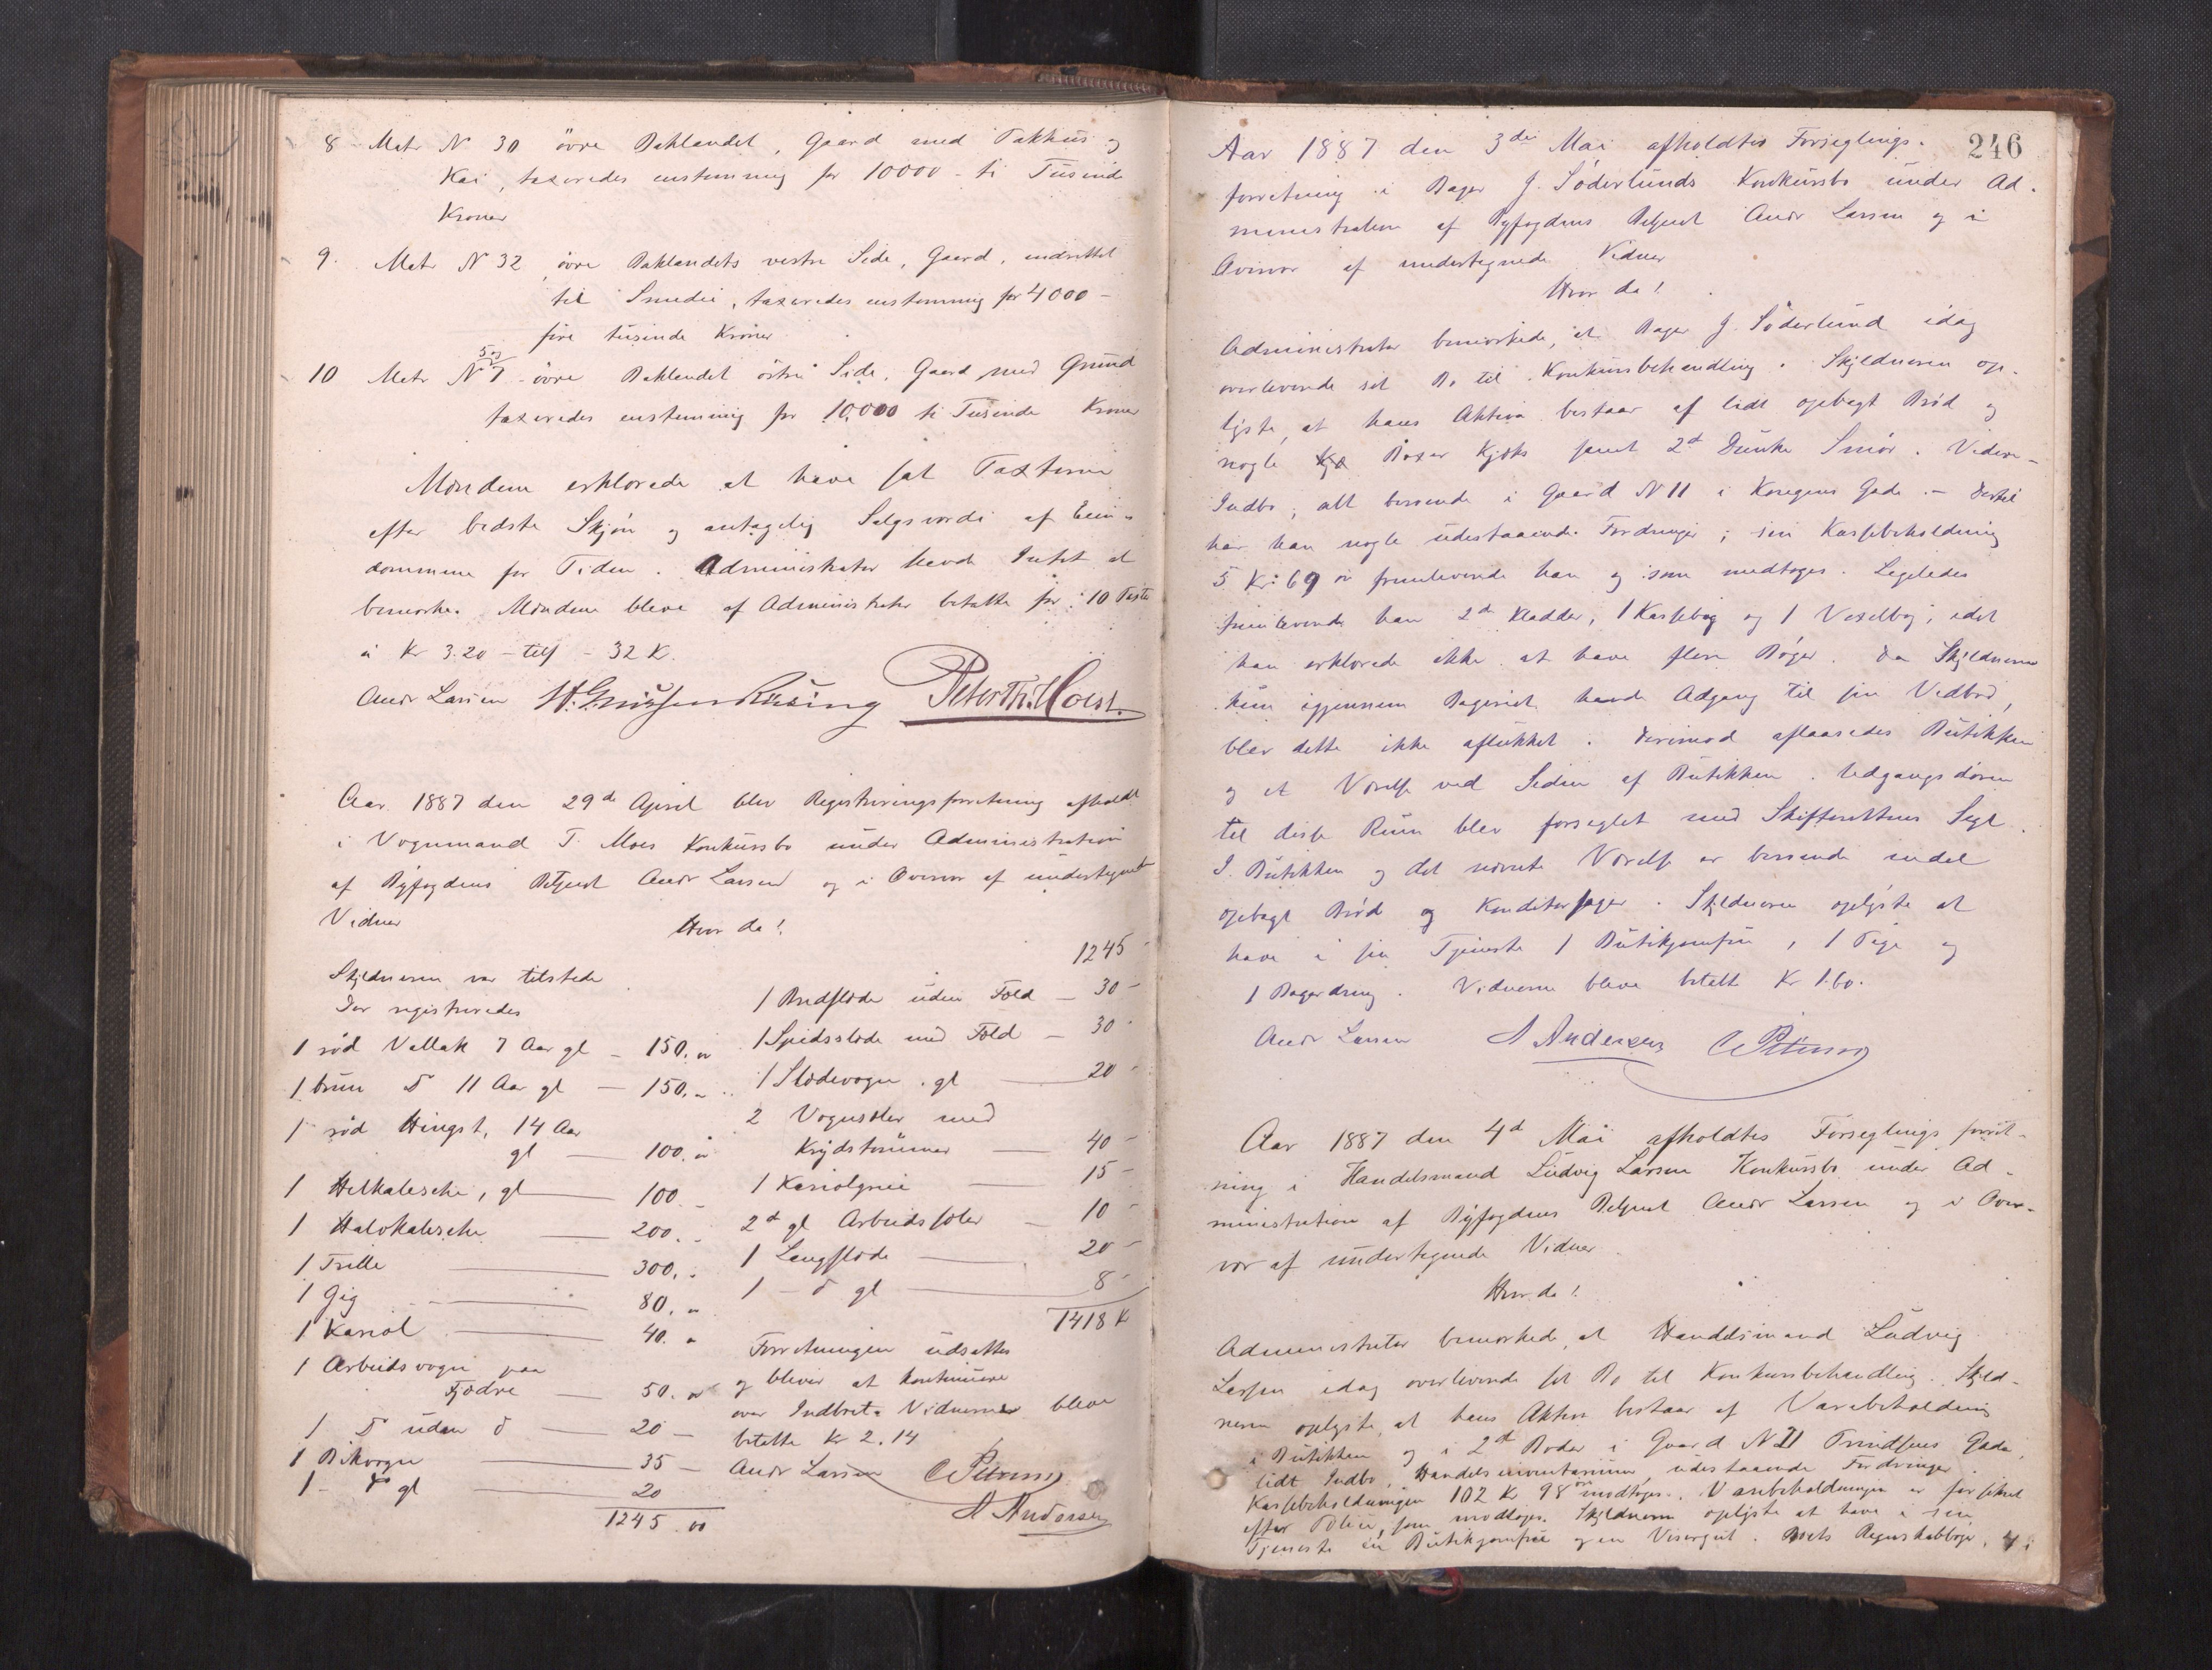 8 Matr N 30 övre Baklandet, Gaard med Pakhus og
Kai, taxeredes enstemmig for 10000 - ti Tusinde
Kroner
9. Matr N 32 övre Baklandets vestre Side, Gaard, indrettet
til Smedie, taxeredes enstemmig for 4000 -
fire tusinde Kroner
10 Matr N 5 og 7 övre Baklandet östre Side, Gaard med Grund
taxeredes enstemmig for 10,000 ti Tusinde Kroner
Mændene erklærede at have sat Taxterne
efter bedste Skjön og antagelig Salgsværdi af Eien-
dommene for Tiden. Administrator havde Intet at
bemærke. Mændene bleve af Administrator betalte for 10 Taxter
á Kr 3.20 - tils - 32 K.
Andr Larsen Peter Th. Moest
Aar 1887 den 29de April blev Registreringsforretning afholdt
i Vognmand T. Moes Konkursbo under Administration
af Byfogdens Betjent Andr Larsen og i Overvær af undertegnede
Vidner
Hvor da!
Skyldneren var tilstede
Der registreredes
1 röd Vallak 7 Aar gl - 150. "
1 brun D 11 Aar gl - 150. "
1 röd Hingst, 14 Aar
gl - 100. "
1 Helkalesche, gl 100 -
1 Halvkalesche 200. -
1 Trille 300. -
1 Gig 80. "
1 Kariol 40. "
1 Arbeidsvogn paa
Fjædre - 50. "
1 D uden d - 20 -
1 Bikvogn 35 -
1 - D gl 20
1245.00
1245 -
1 Bredslæde uden Fæld - 30 -
1 Spidsslæde med Fæld - 30 -
1 Slædevogn. gl 20 -
2 Vognsæler med
Krydstömmer 40 -
1 Kariolgreie 15 -
2de gl Arbeidssæler - 10 -
1 Langslæde 20 -
1 - d gl 8 -
1418 K
Forretningen udsattes
og bliver at kontinuere
over Indbret. Vidnerne bleve
betalte Kr 2.14
Andr Larsen C Petersen
A Andersen
246
Aar 1887 den 3die Mai afholdtes Forseglings-
forretning i Bager J. Söderlunds Konkursbo under Ad-
ministration af Byfogdens Betjent Andr Larsen og i
Overvær af undertegnede Vidner
Hvor da!
Administrator bemærkede, at Bager J. Söderlund idag
overleverede sit Bo til Konkursbehandling. Skyldneren op-
lyste, at hans Aktiva bestaar af lidt opbagt Bröd og
nogle Boxer Kjæks samt 2de Dunke Smör. Videre
Indbo, alt beroende i Gaard N 11 i Kongens Gade. - Dertil
har han nogle udestaaende Fordringer; sin Kassebeholdning
5 Kr: 69 ör fremleverede han og som medtoges. Ligeledes
fremleverede han 2de Kladder, 1 Kassebog og 1 Vexelbog, idet
han erklærede ikke at have flere Böger. Da Skyldneren
kun igjennem Bageriet havde Adgang til sin Vedbod,
blev dette ikke aflukket. Derimod aflaasedes Butikken
og et Værelse ved Siden af Butikken. Udgangsdören
til disse Rum blev forseglet med Skifterettens Segl.
I Butikken og det nævnte Værelse er beroende endel
opbagt Bröd og Konditorsager. Skyldneren oplyste at
have i sin Tjeneste 1 Butikjomfru, 1 Pige og
1 Bagerdreng. Vidnerne bleve betalt Kr 1.60.
Andr Larsen A Andersen C Petersen
Aar 1887 den 4de Mai afholdtes Forseglings forret-
ning i Handelsmand Ludvig Larsen Konkursbo under Ad-
ministration af Byfogdens Betjent Andr Larsen og i Over-
vær af undertegnede Vidner.
Hvor da!
Administrator bemærkede, at Handelsmand Ludvig
Larsen idag overleverede sit Bo til Konkursbehandling. Skyld-
neren oplyste, at hans Aktiva bestaar af Varebeholdning
i Butikken og i 2de Boder i Gaard N 21 Gade,
lidt Indbo, Handelsinventarium, udestaaende Fordringer.
Kassebeholdningen 102 Kr 98 ör medtoges. Varebeholdningen er forsikret
efter Police, som medtoges. Skyldneren oplyste at have i sin
Tjeneste en Butikjomfru og en Visergut. Boets Regnskabsböger, 4